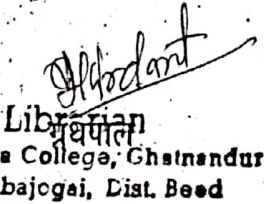 Librarian
ग्रंथपाल
a College, Ghatnandur
bajogai, Dist. Beed